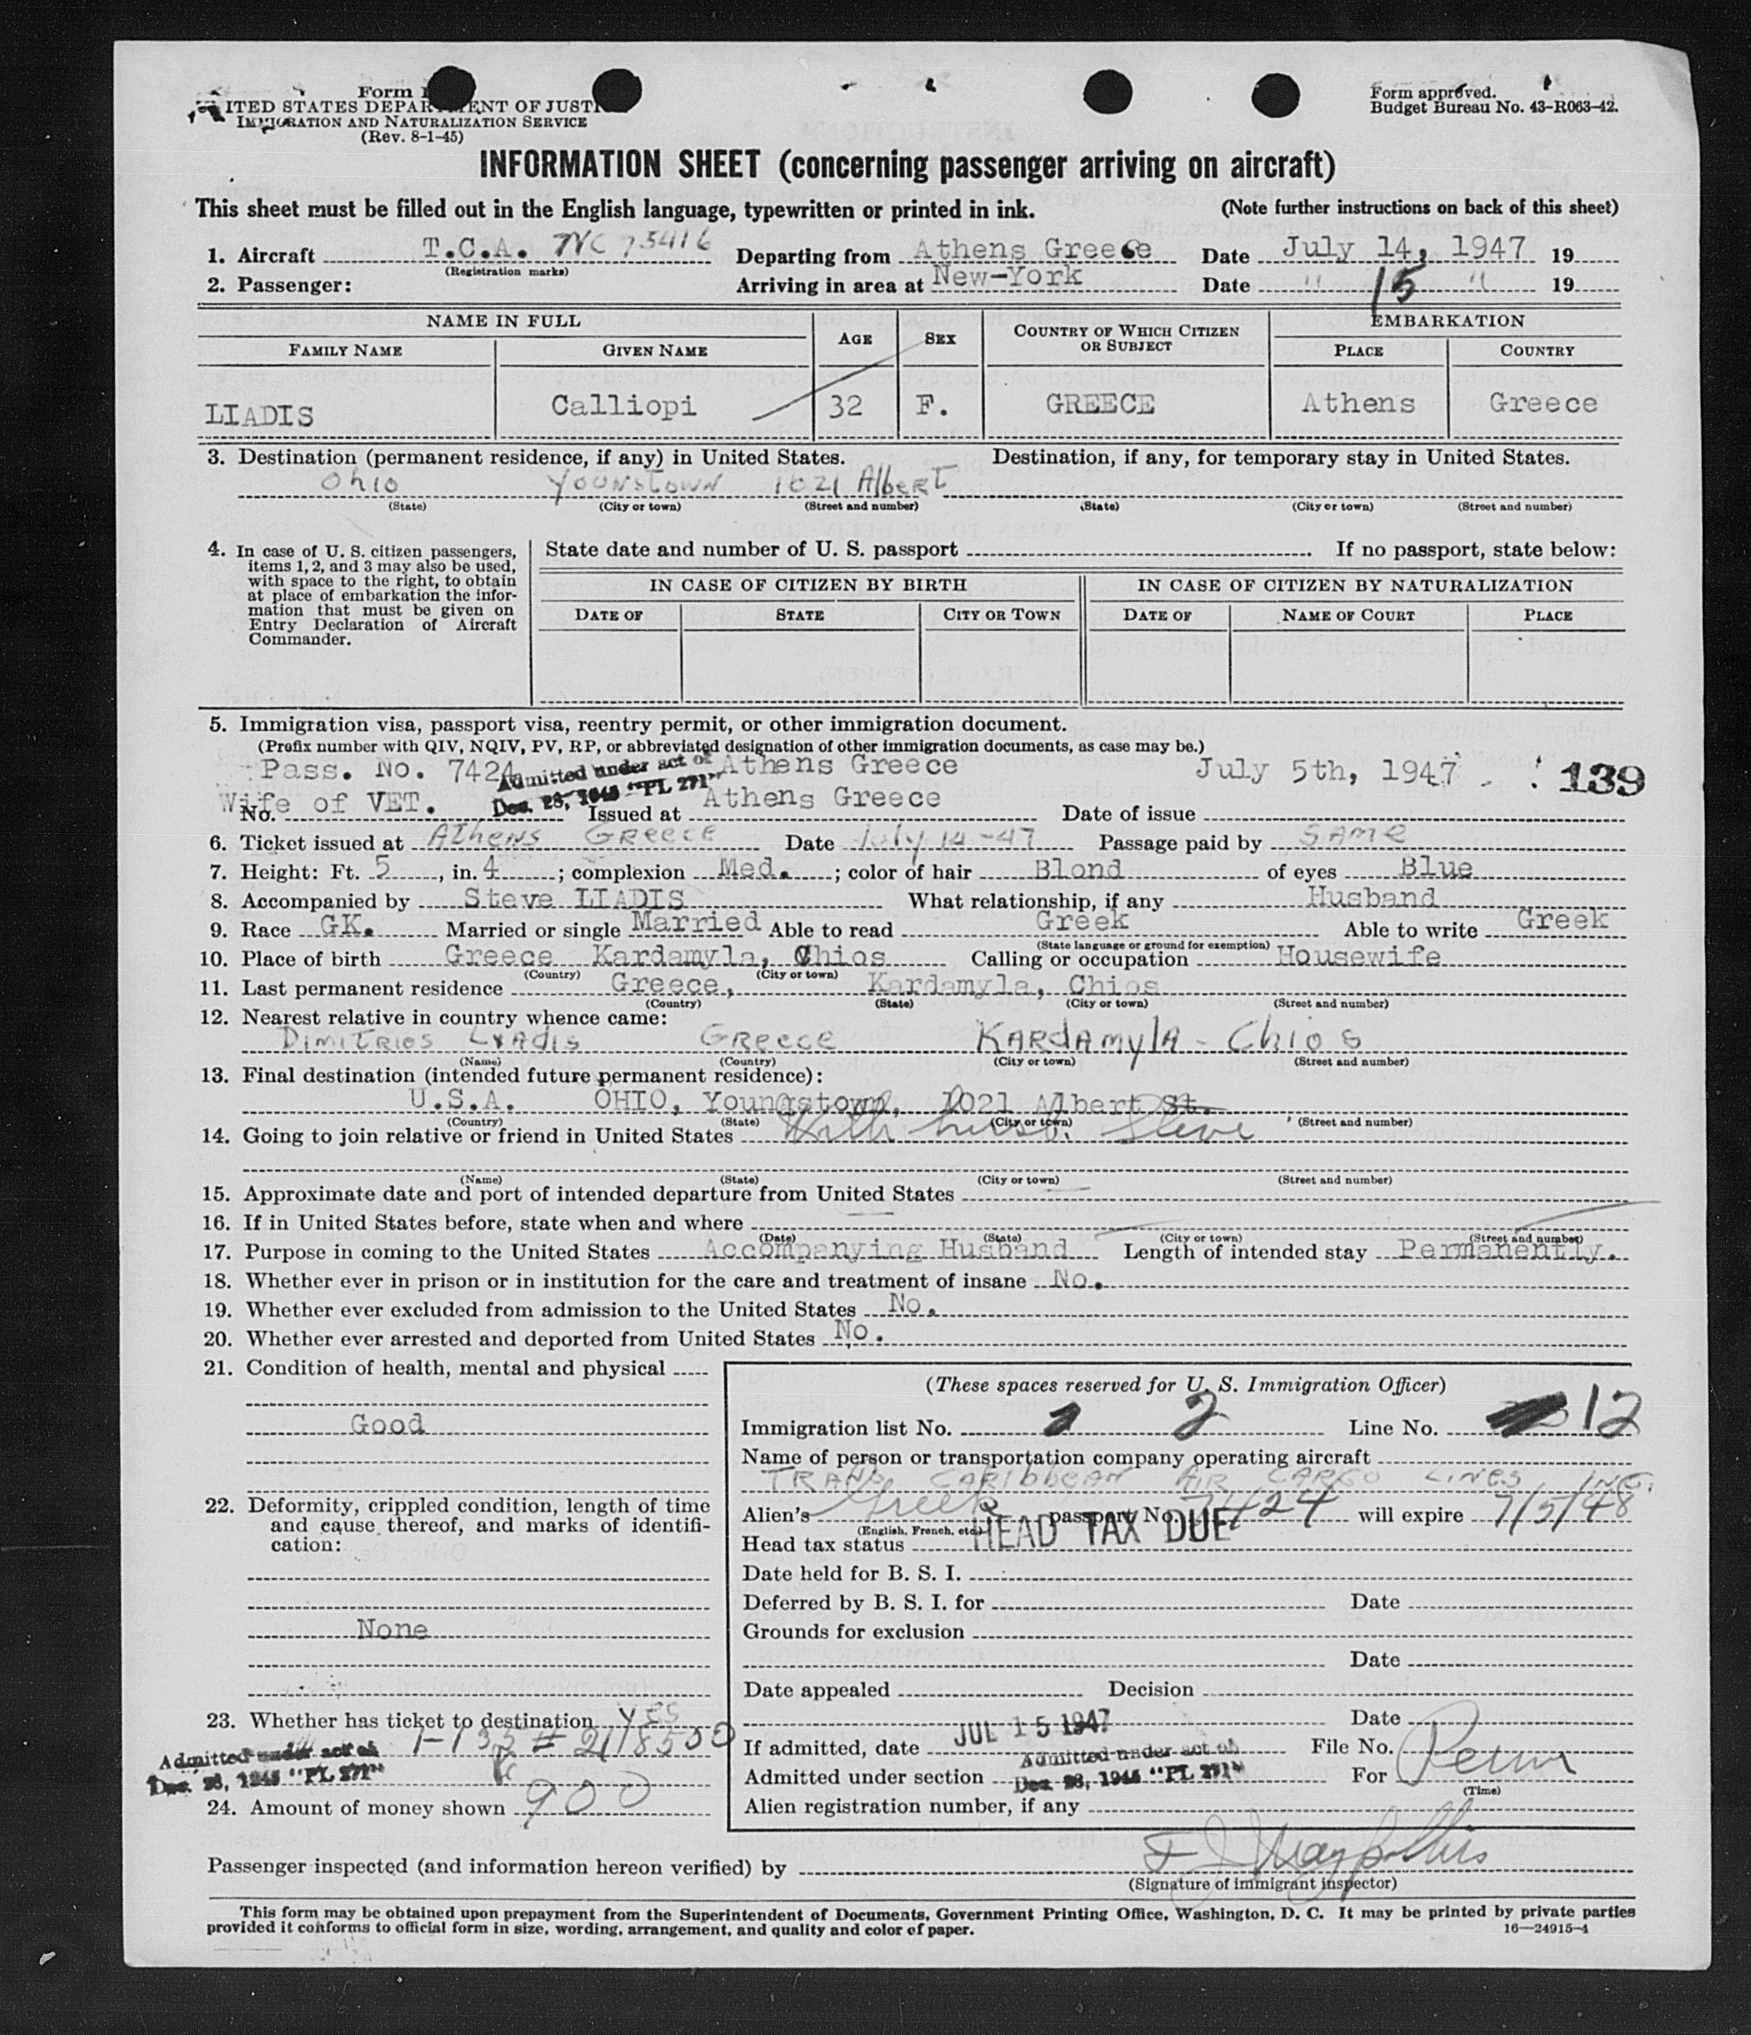 Form
UNITED STATES DEPARTMENT OF JUSTICE
IMMIGRATION AND NATURALIZATION SERVICE
(Rev. 8-1-45)
Form approved.
Budget Bureau No. 43-R063-42.
INFORMATION SHEET (concerning passenger arriving on aircraft)
This sheet must be filled out in the English language, typewritten or printed in ink. (Note further instructions on back of this sheet)
1. Aircraft T.C.A. NC 75416 Departing from Athens Greece Date July 14, 1947 19
(Registration marks)
2. Passenger: Arriving in area at New-York Date " 15 " 19
NAME IN FULL AGE SEX COUNTRY OF WHICH CITIZEN OR SUBJECT EMBARKATION
FAMILY NAME GIVEN NAME PLACE COUNTRY
LIADIS Calliopi 32 F. GREECE Athens Greece
3. Destination (permanent residence, if any) in United States. Destination, if any, for temporary stay in United States.
Ohio Younstown 1021 Albert
(State) (City or town) (Street and number) (State) (City or town) (Street and number)
4. In case of U. S. citizen passengers, items 1, 2, and 3 may also be used, with space to the right, to obtain at place of embarkation the information that must be given on Entry Declaration of Aircraft Commander.
State date and number of U. S. passport If no passport, state below:
IN CASE OF CITIZEN BY BIRTH IN CASE OF CITIZEN BY NATURALIZATION
DATE OF STATE CITY OR TOWN DATE OF NAME OF COURT PLACE
5. Immigration visa, passport visa, reentry permit, or other immigration document.
(Prefix number with QIV, NQIV, PV, RP, or abbreviated designation of other immigration documents, as case may be.)
Pass. No. 7424 Athens Greece July 5th, 1947 139
Admitted under act of
Dec. 28, 1945 "PL 271"
Wife of VET. Athens Greece
No. Issued at Date of issue
6. Ticket issued at Athens Greece Date July 14-47 Passage paid by SAME
7. Height: Ft. 5, in. 4; complexion Med.; color of hair Blond of eyes Blue
8. Accompanied by Steve LIADIS What relationship, if any Husband
9. Race GK. Married or single Married Able to read Greek Able to write Greek
(State language or ground for exemption)
10. Place of birth Greece Kardamyla, Chios Calling or occupation Housewife
(Country) (City or town)
11. Last permanent residence Greece, Kardamyla, Chios
(Country) (State) (City or town) (Street and number)
12. Nearest relative in country whence came:
Dimitrios Lyadis Greece KARDAMYLA - Chios
(Name) (Country) (City or town) (Street and number)
13. Final destination (intended future permanent residence):
U.S.A. OHIO, Youngstown, 1021 Albert St.
(Country) (State) (City or town) (Street and number)
14. Going to join relative or friend in United States With husb. Steve
(Name) (State) (City or town) (Street and number)
15. Approximate date and port of intended departure from United States
16. If in United States before, state when and where
(Date) (State) (City or town) (Street and number)
17. Purpose in coming to the United States Accompanying Husband Length of intended stay Permanently.
18. Whether ever in prison or in institution for the care and treatment of insane No.
19. Whether ever excluded from admission to the United States No.
20. Whether ever arrested and deported from United States No.
21. Condition of health, mental and physical
Good
22. Deformity, crippled condition, length of time and cause thereof, and marks of identification:
None
23. Whether has ticket to destination YES
Admitted under act of
Dec. 28, 1945 "PL 271"
24. Amount of money shown 900
(These spaces reserved for U. S. Immigration Officer)
Immigration list No. 2 Line No. 12
Name of person or transportation company operating aircraft
TRANS CARIBBEAN AIR CARGO LINES INC.
Alien's Greek passport No. 7424 will expire 7/5/48
(English, French, etc.)
Head tax status HEAD TAX DUE
Date held for B. S. I.
Deferred by B. S. I. for Date
Grounds for exclusion
Date
Date appealed Decision
Date
If admitted, date JUL 15 1947 File No.
Admitted under section Admitted under act of Dec. 28, 1945 "PL 271" For Perm
(Time)
Alien registration number, if any
Passenger inspected (and information hereon verified) by
(Signature of immigrant inspector)
This form may be obtained upon prepayment from the Superintendent of Documents, Government Printing Office, Washington, D. C. It may be printed by private parties
provided it conforms to official form in size, wording, arrangement, and quality and color of paper.
16—24915-4